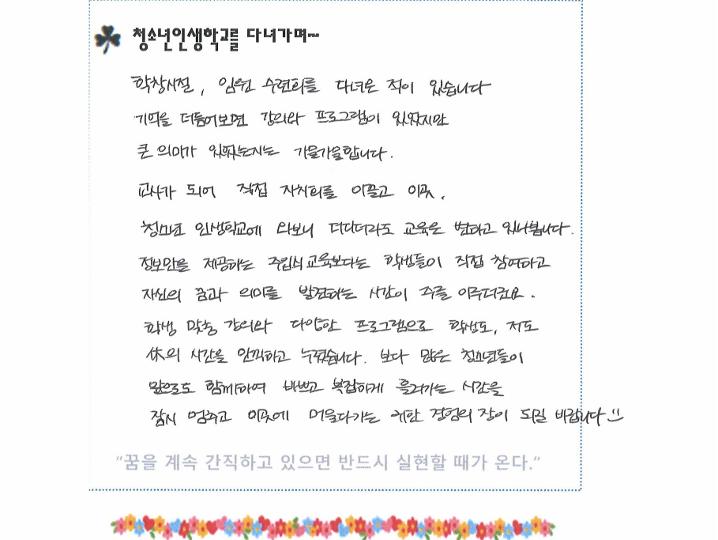 청소년인생학교를 다녀가며...
학창시절, 임원 수련회를 다녀온 적이 있습니다
기억을 더듬어보면 강의와 프로그램이 있었지만
큰 의미가 있었는지는 가물가물합니다.
교사가 되어 직접 자치회를 이끌고 이곳,
청소년 인생학교에 와보니 더디더라도 교육은 변하고 있나봅니다.
정보만을 제공하는 주입식 교육보다는 학생들이 직접 참여하고
자신의 꿈과 의미를 발견하는 시간이 주를 이루더군요.
학생 맞춤 강의와 다양한 프로그램으로 학생도, 저도
休의 시간을 만끽하고 누렸습니다. 보다 많은 청소년들이
앞으로도 함께하여 바쁘고 복잡하게 흘러가는 시간을
잠시 멈추고 이곳에 머물다가는 귀한 경험의 장이 되길 바랍니다
"꿈을 계속 간직하고 있으면 반드시 실현할 때가 온다."